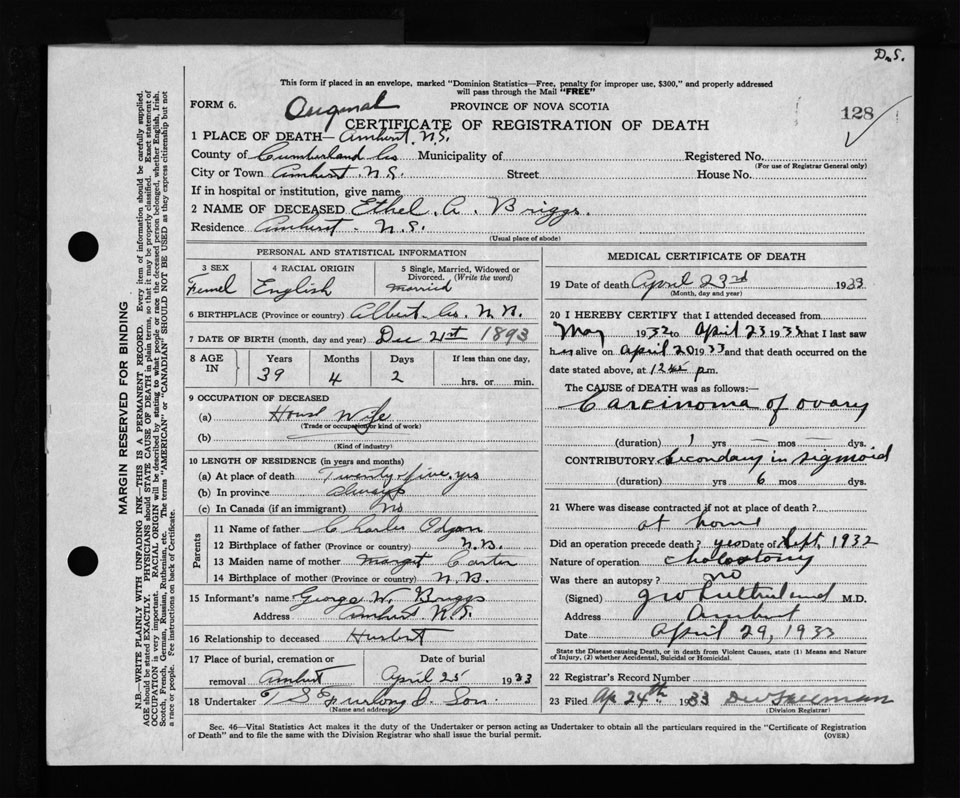 D.S.
This form if placed in an envelope, marked "Dominion Statistics—Free, penalty for improper use, $300," and properly addressed
will pass through the Mail "FREE"
FORM 6. Original PROVINCE OF NOVA SCOTIA 128
CERTIFICATE OF REGISTRATION OF DEATH
1 PLACE OF DEATH— Amherst, N.S.
County of Cumberland Co Municipality of Registered No.
(For use of Registrar General only)
City or Town Amherst N.S. Street House No.
If in hospital or institution, give name
2 NAME OF DECEASED Ethel A. Briggs.
Residence Amherst - N.S.
(Usual place of abode)
PERSONAL AND STATISTICAL INFORMATION
3 SEX 4 RACIAL ORIGIN 5 Single, Married, Widowed or Divorced. (Write the word)
Femel English married
6 BIRTHPLACE (Province or country) Albert Co. N.B.
7 DATE OF BIRTH (month, day and year) Dec 21st 1893
8 AGE IN Years Months Days If less than one day,
39 4 2 hrs. or min.
9 OCCUPATION OF DECEASED
(a) House Wife
(Trade or occupation or kind of work)
(b)
(Kind of industry)
10 LENGTH OF RESIDENCE (in years and months)
(a) At place of death Twenty-five yrs
(b) In province always
(c) In Canada (if an immigrant) No
Parents
11 Name of father Charles
12 Birthplace of father (Province or country) N.B.
13 Maiden name of mother Margret Carter
14 Birthplace of mother (Province or country) N.B.
15 Informant's name George W. Briggs
Address Amherst N.S.
16 Relationship to deceased
17 Place of burial, cremation or Date of burial
removal Amherst April 25 1933
18 Undertaker Furlong & Son
(Name and address)
MEDICAL CERTIFICATE OF DEATH
19 Date of death April 23rd 1933
(Month, day and year)
20 I HEREBY CERTIFY that I attended deceased from
May 1932 to April 23 1933 that I last saw
her alive on April 20 1933 and that death occurred on the
date stated above, at 12 p.m.
The CAUSE of DEATH was as follows:—
Carcinoma of ovary
(duration) 1 yrs — mos — dys.
CONTRIBUTORY Secondary in sigmoid
(duration) yrs 6 mos dys.
21 Where was disease contracted if not at place of death?
at home
Did an operation precede death? yes Date of Sept, 1932
Nature of operation
Was there an autopsy? no
(Signed) M.D.
Address Amherst
Date April 29, 1933
State the Disease causing Death, or in death from Violent Causes, state (1) Means and Nature
of Injury, (2) whether Accidental, Suicidal or Homicidal.
22 Registrar's Record Number
23 Filed Ap 24th 1933
(Division Registrar)
Sec. 46—Vital Statistics Act makes it the duty of the Undertaker or person acting as Undertaker to obtain all the particulars required in the "Certificate of Registration
of Death" and to file the same with the Division Registrar who shall issue the burial permit. (OVER)
MARGIN RESERVED FOR BINDING
N.B.—WRITE PLAINLY WITH UNFADING INK—THIS IS A PERMANENT RECORD. Every item of information should be carefully supplied.
AGE should be stated EXACTLY. PHYSICIANS should STATE CAUSE OF DEATH in plain terms, so that it may be properly classified. Exact statement of
OCCUPATION is very important. RACIAL ORIGIN will be described by stating to what people or race the deceased person belonged, whether English, Irish,
Scotch, French, German, Russian, Ruthenian, etc. The terms "AMERICAN" or "CANADIAN" SHOULD NOT BE USED as they express citizenship but not
a race or people. Fee instructions on back of Certificate.